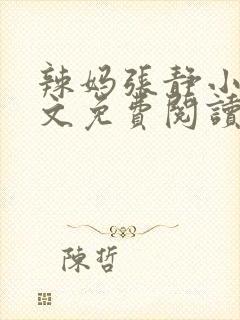 辣媽張靜小
文免費閱讀
陳哲